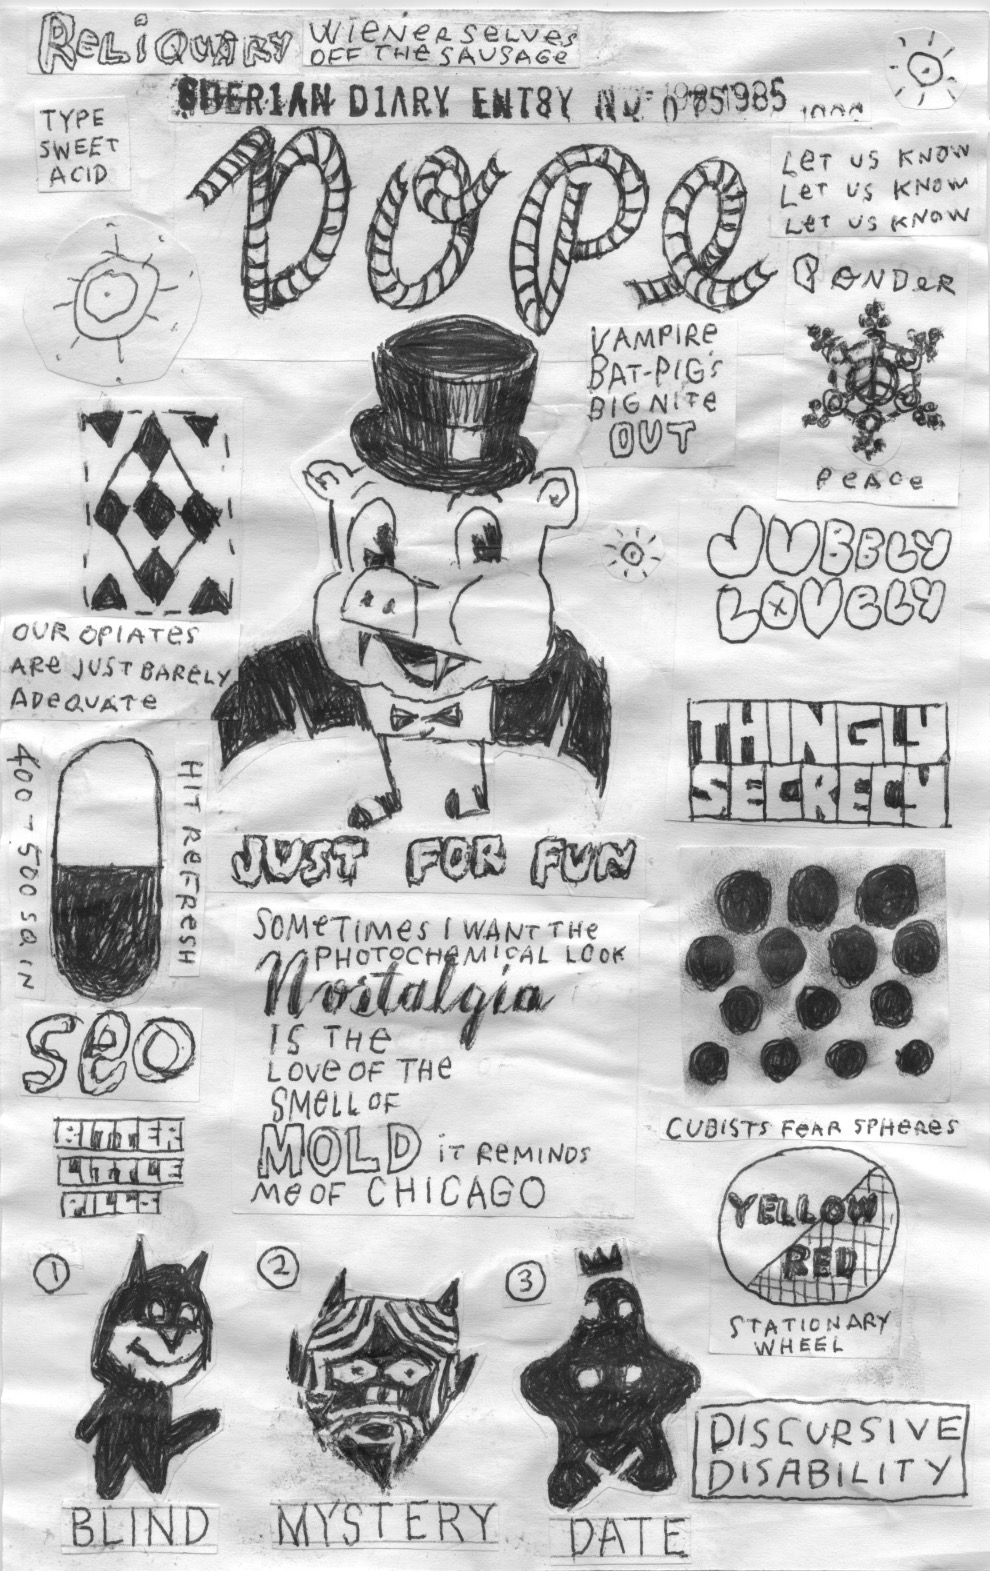 RELIQUARY
WIENERSELVES
OFF THE SAUSAGE
TYPE
SWEET
ACID
DIARY ENT8Y NO
1985
Dope
LET US KNOW
LET US KNOW
LET US KNOW
PONDER
PEACE
VAMPIRE
BAT-PIG'S
BIG NITE
OUT
JUBBLY
LOVELY
OUR OPIATES
ARE JUST BARELY
ADEQUATE
THINGLY
SECRECY
400-500 SQ IN
HIT REFRESH
JUST FOR FUN
SOMETIMES I WANT THE
PHOTOCHEMICAL LOOK
Nostalgia
IS THE
LOVE OF THE
SMELL OF
MOLD IT REMINDS
ME OF CHICAGO
SEO
BITTER
LITTLE
PILLS
CUBISTS FEAR SPHERES
YELLOW
RED
STATIONARY
WHEEL
1
2
3
BLIND
MYSTERY
DATE
DISCURSIVE
DISABILITY